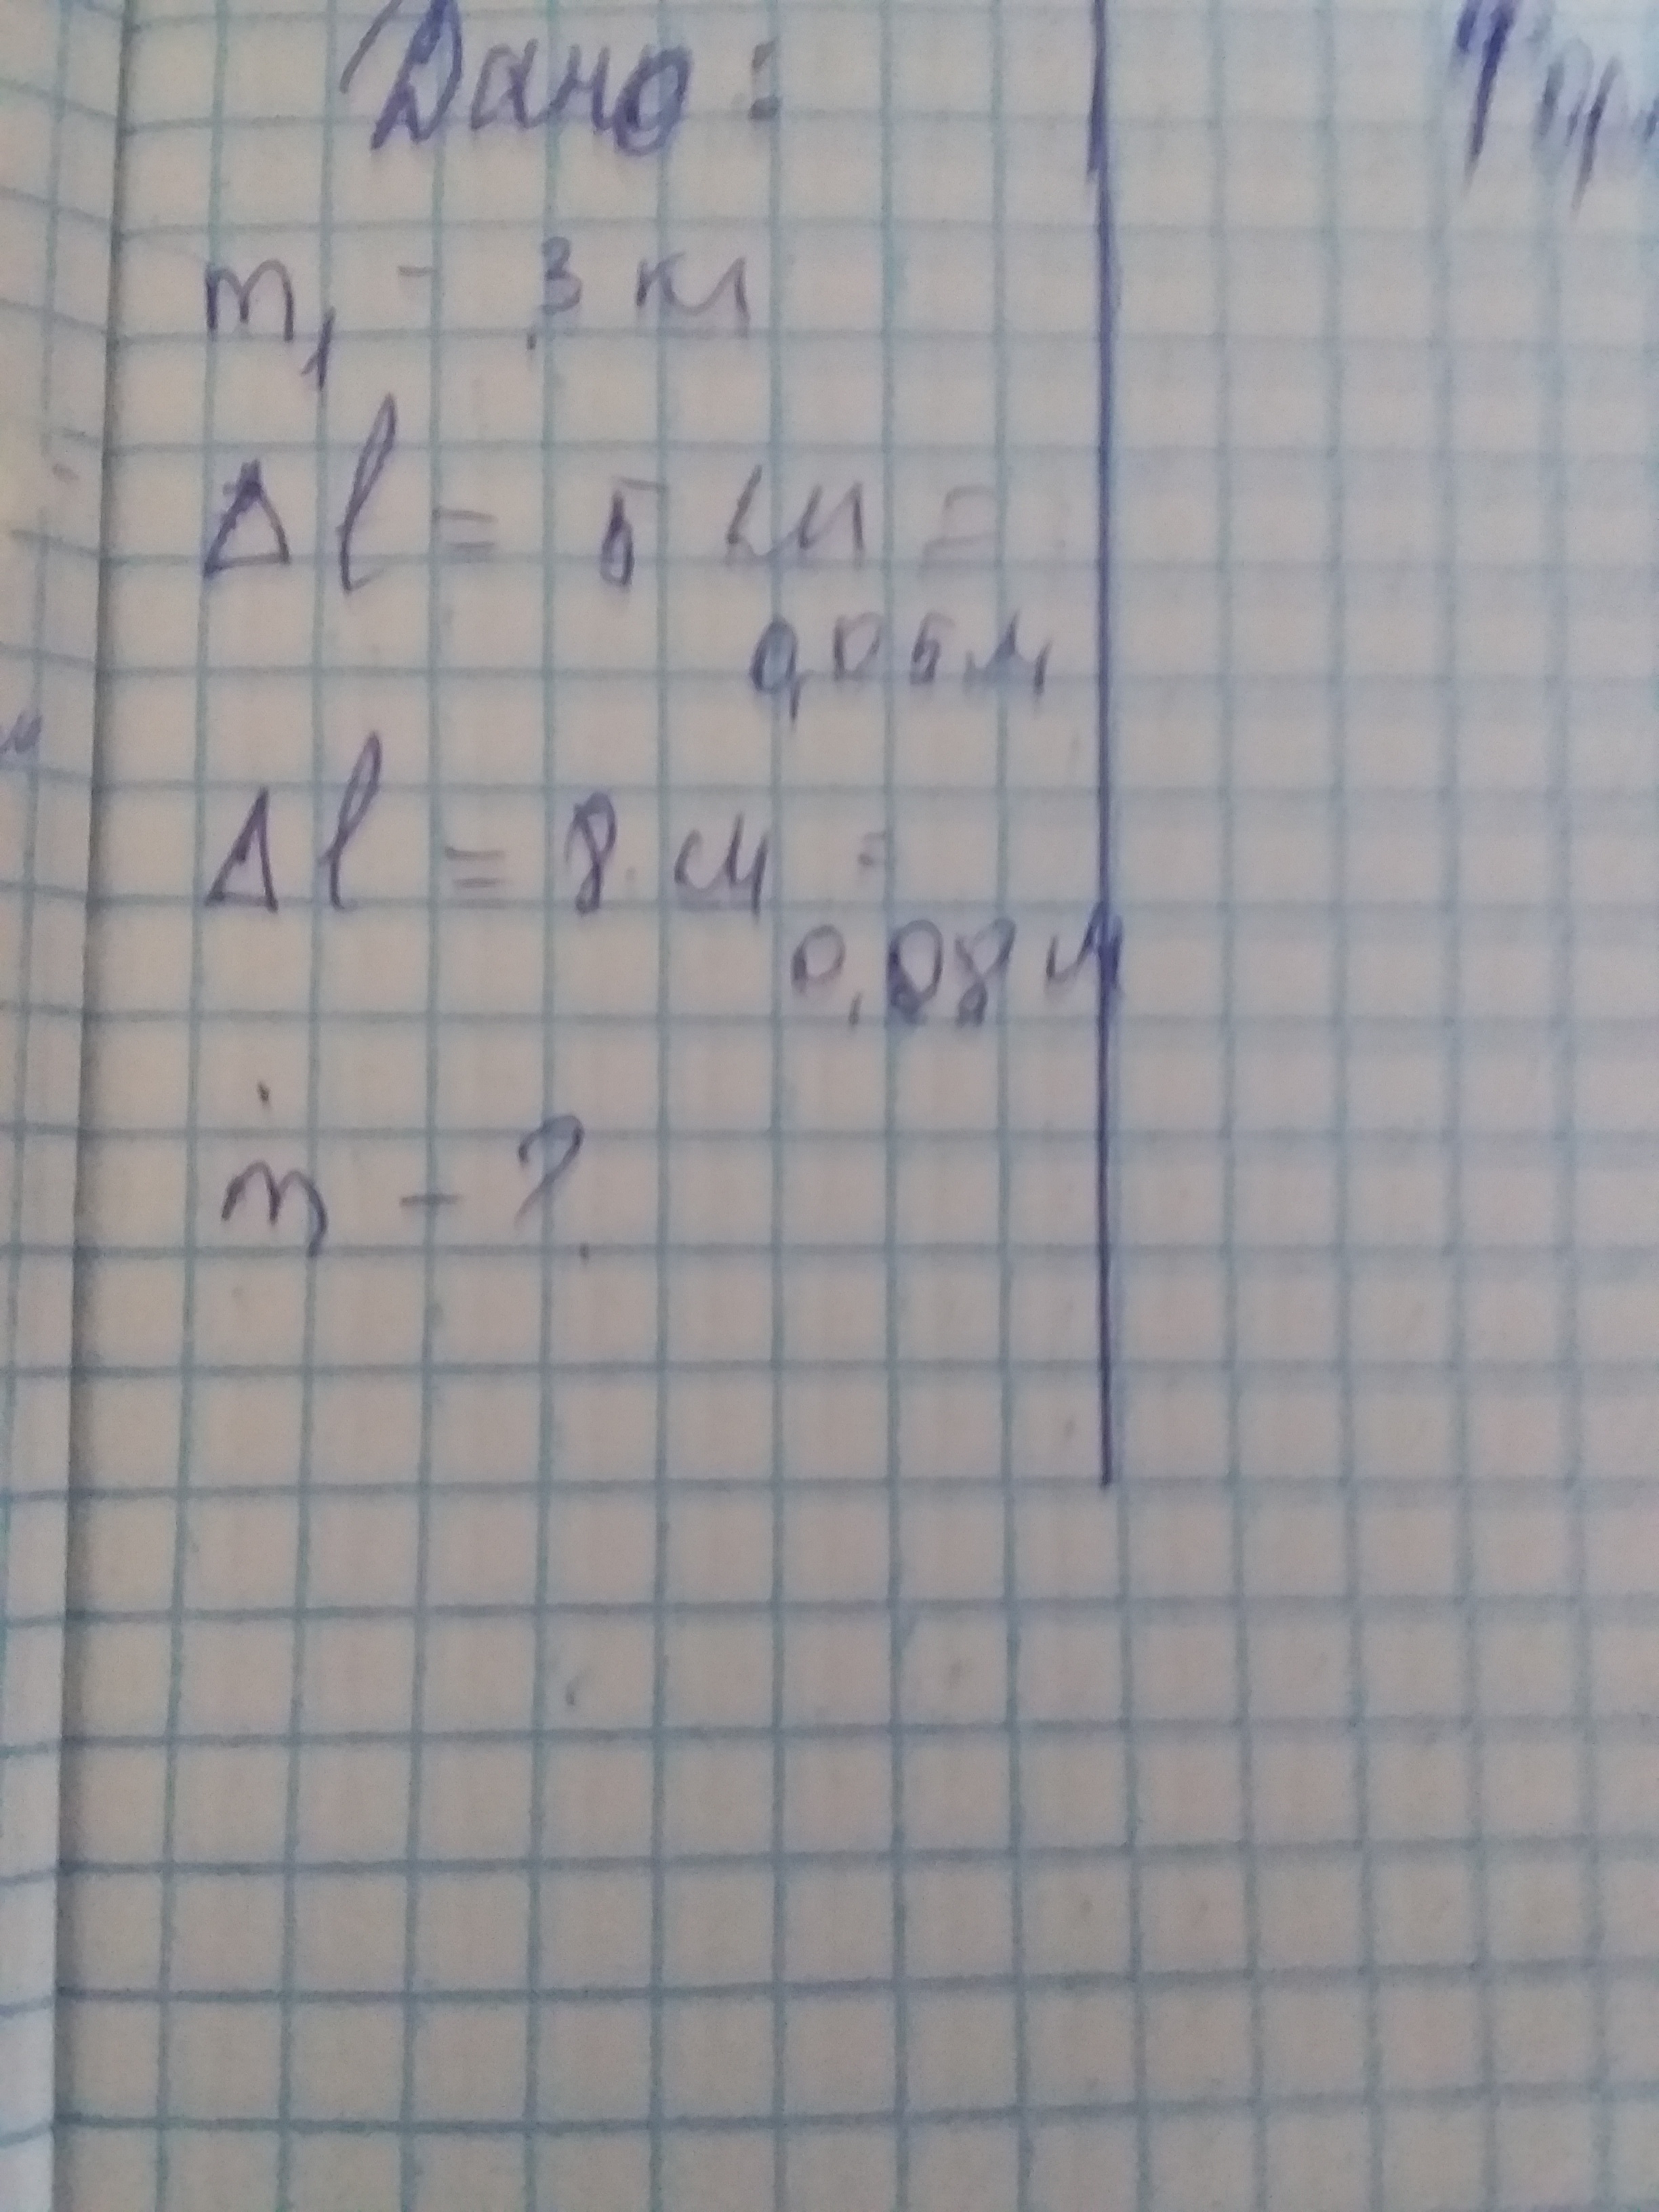 Дано:
m₁ - 3 кг
Δl = 5 см =
0,05 м
Δl = 8 см =
0,08 м
m - ?